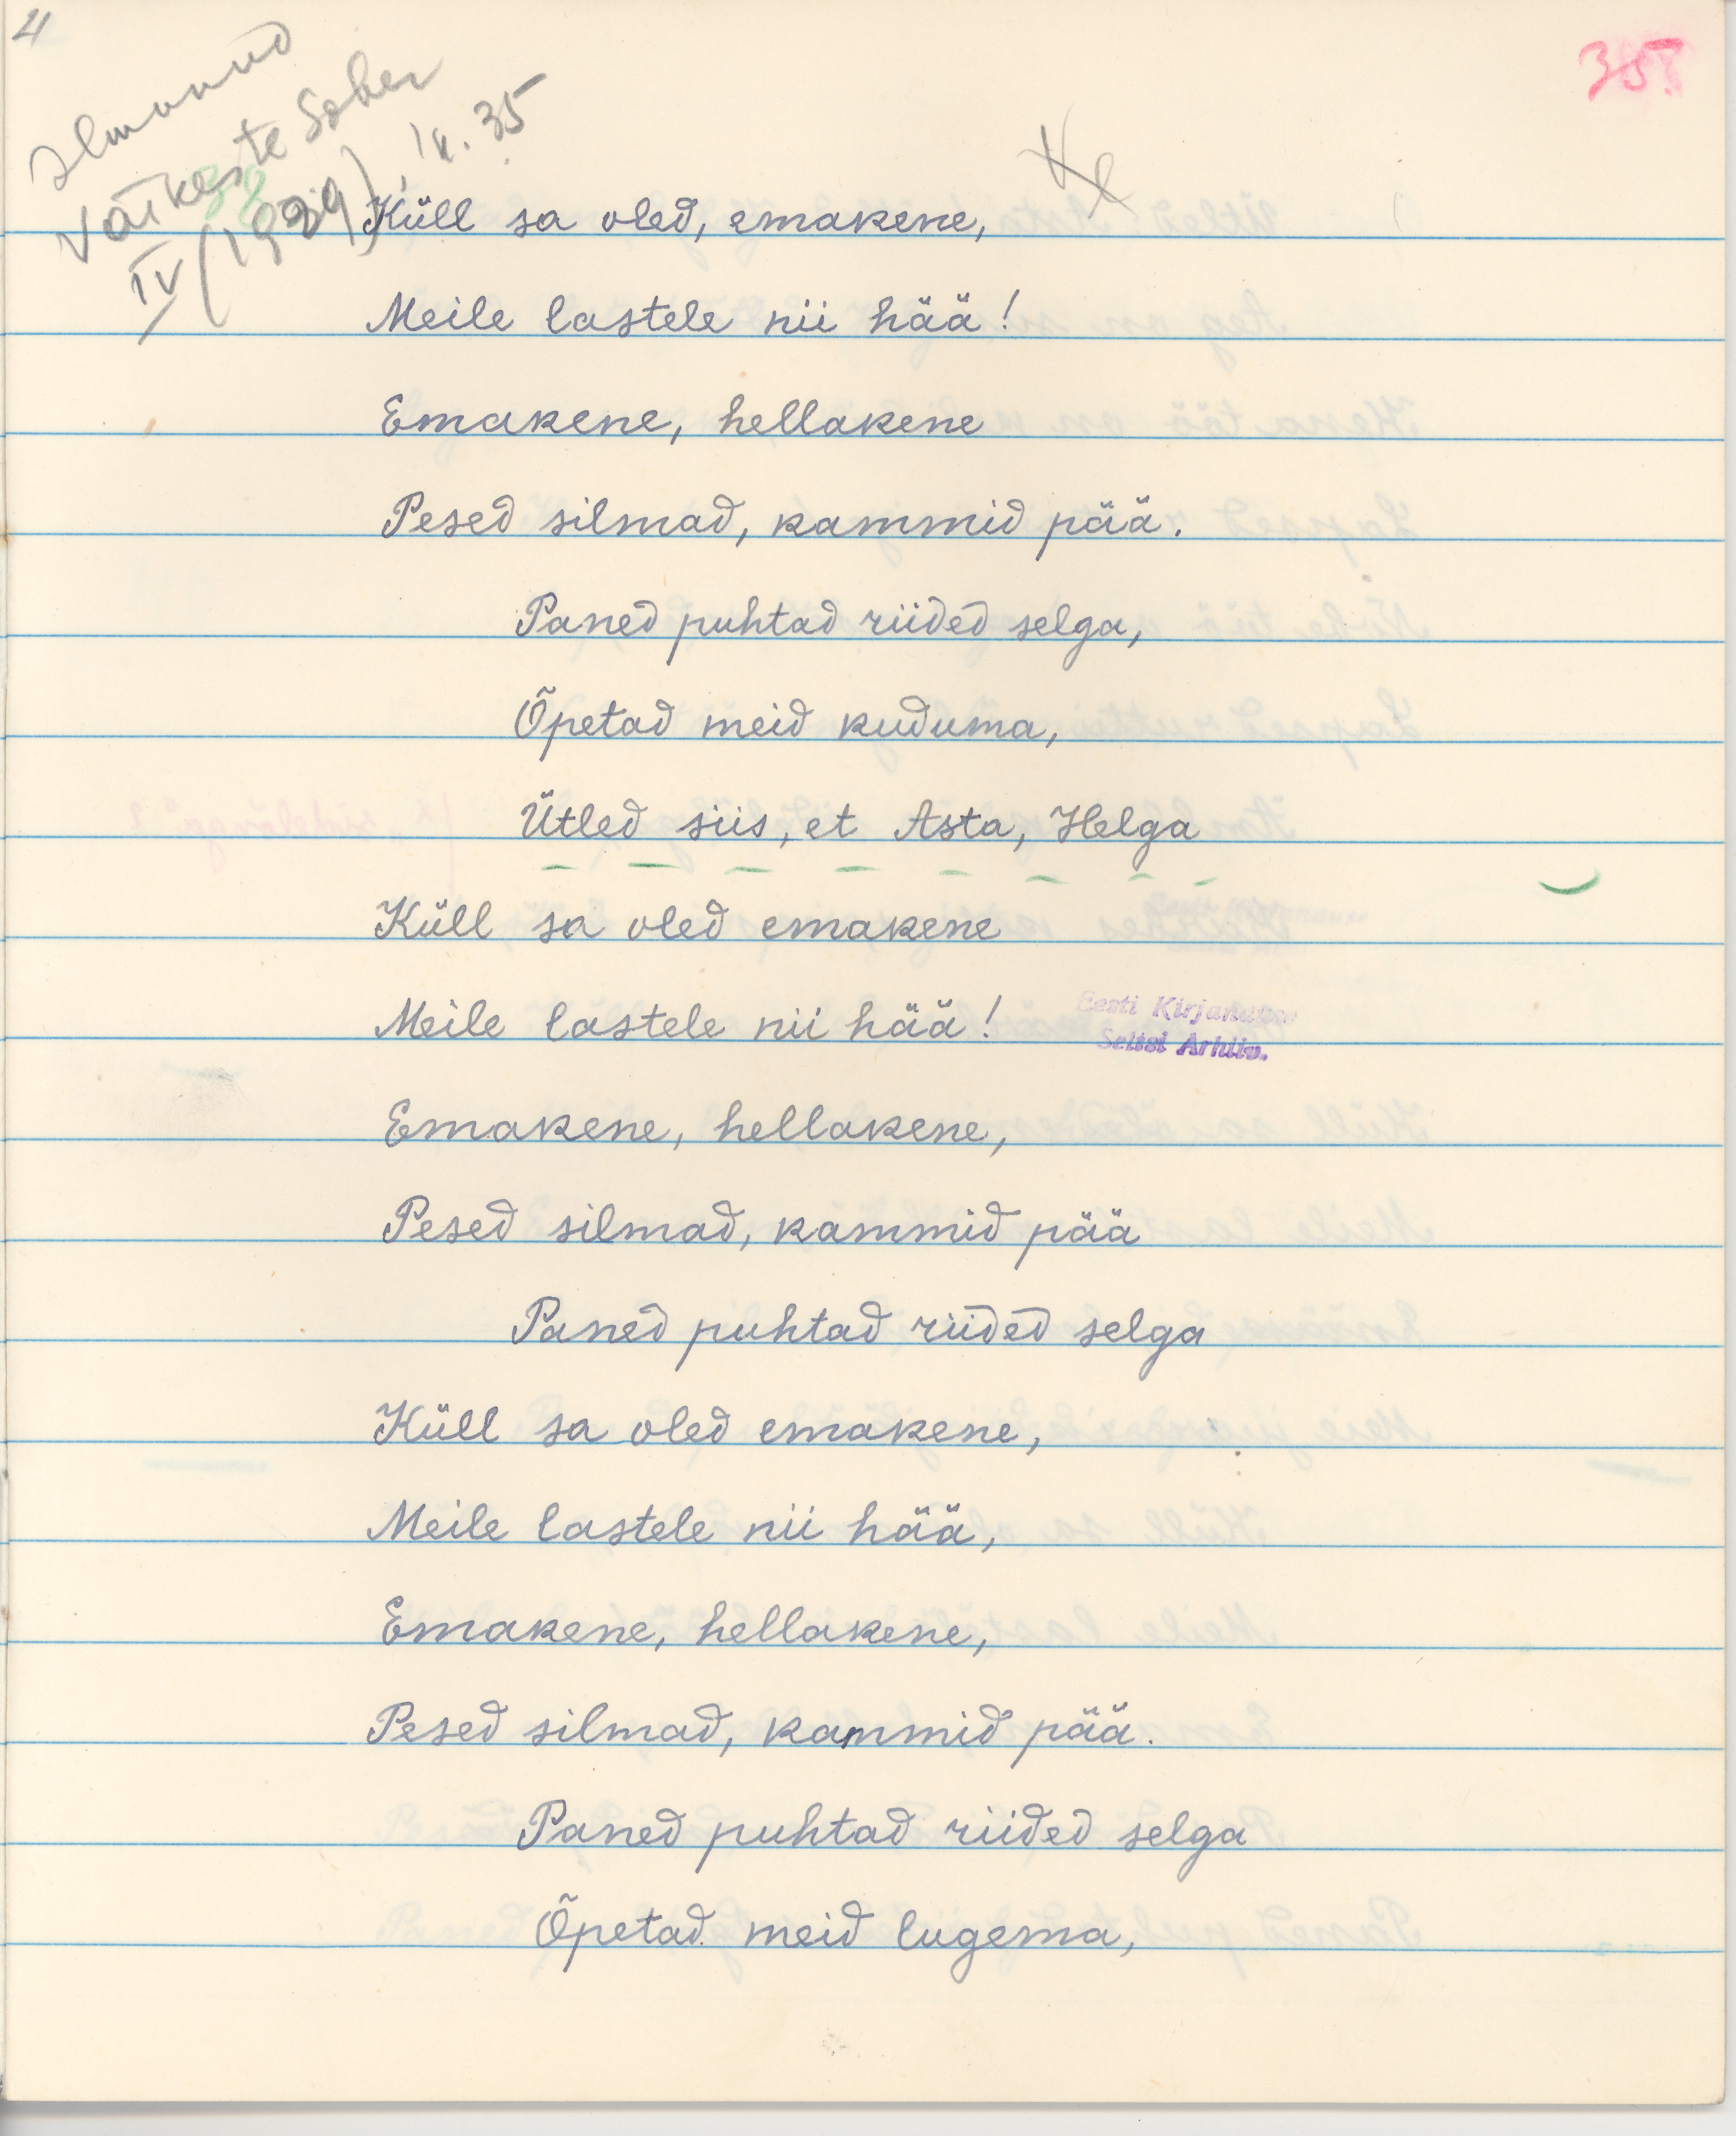 21
355
Ilmunud
Väikeste Sõber
IV (1939), lk. 35
Küll sa oled, emakene,
Meile lastele nii hää!
Emakene, hellakene
Pesed silmad, kammid pää.
Paned puhtad riided selga,
Õpetad meid kuduma,
Ütled siis, et Asta, Helga
Küll sa oled emakene
Meile lastele nii hää!
Eesti Kirjanduse
Seltsi Arhiiv.
Emakene, hellakene,
Pesed silmad, kammid pää
Paned puhtad riided selga
Küll sa oled emakene,
Meile lastele nii hää,
Emakene, hellakene,
Pesed silmad, kammid pää.
Paned puhtad riided selga
Õpetad meid lugema,